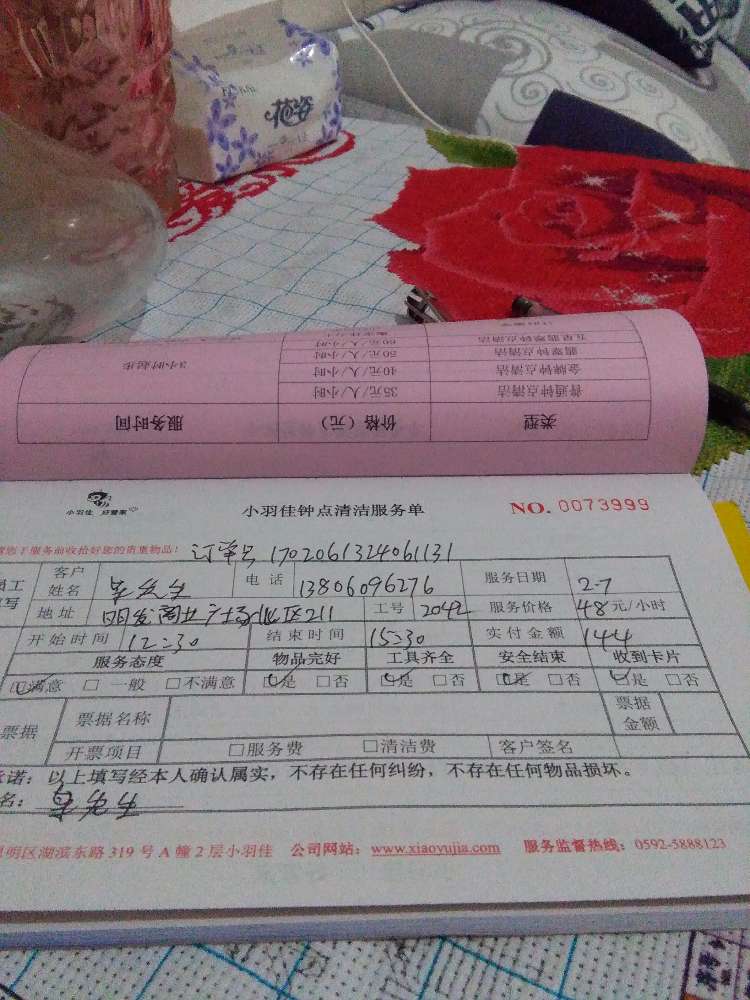 花姿
五星翡翠钟点清洁 60元/人/小时
翡翠钟点清洁 50元/人/小时
金牌钟点清洁 40元/人/小时 3小时起步
普通钟点清洁 35元/人/小时
类型 价格（元） 服务时间
小羽佳 好管家 小羽佳钟点清洁服务单 NO. 0073999
服务前收拾好您的贵重物品： 订单号 1702061324061131
客户姓名 电话 13806096276 服务日期 2.7
地址 明发商业广场 211 工号 2042 服务价格 48元/小时
开始时间 12:30 结束时间 15:30 实付金额 144
服务态度 物品完好 工具齐全 安全结束 收到卡片
☑满意 □一般 □不满意 ☑是 □否 ☑是 □否 ☑是 □否 ☑是 □否
票据 票据名称 票据金额
开票项目 □服务费 □清洁费 客户签名
诺：以上填写经本人确认属实，不存在任何纠纷，不存在任何物品损坏。
名：
明区湖滨东路 319 号 A 幢 2 层小羽佳 公司网站：www.xiaoyujia.com 服务监督热线：0592-5888123